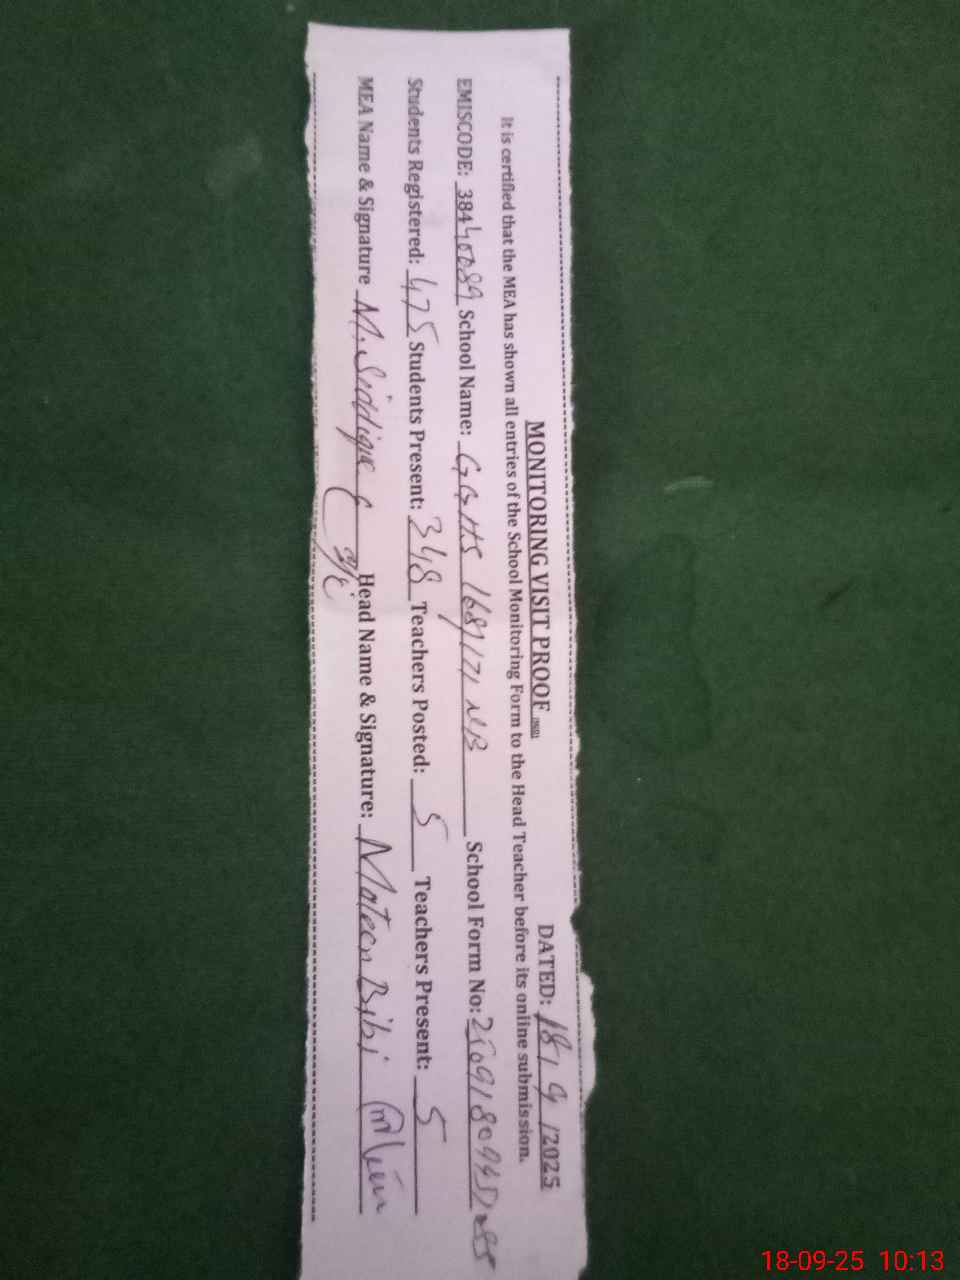 MONITORING VISIT PROOF DATED: 18/9/2025
It is certified that the MEA has shown all entries of the School Monitoring Form to the Head Teacher before its online submission.
EMISCODE: 38440089 School Name: GGHS 168/171 NB School Form No:
Students Registered: 475 Students Present: 348 Teachers Posted: 5 Teachers Present: 5
MEA Name & Signature M. Siddique Head Name & Signature: Mateen Bibi
18-09-25 10:13